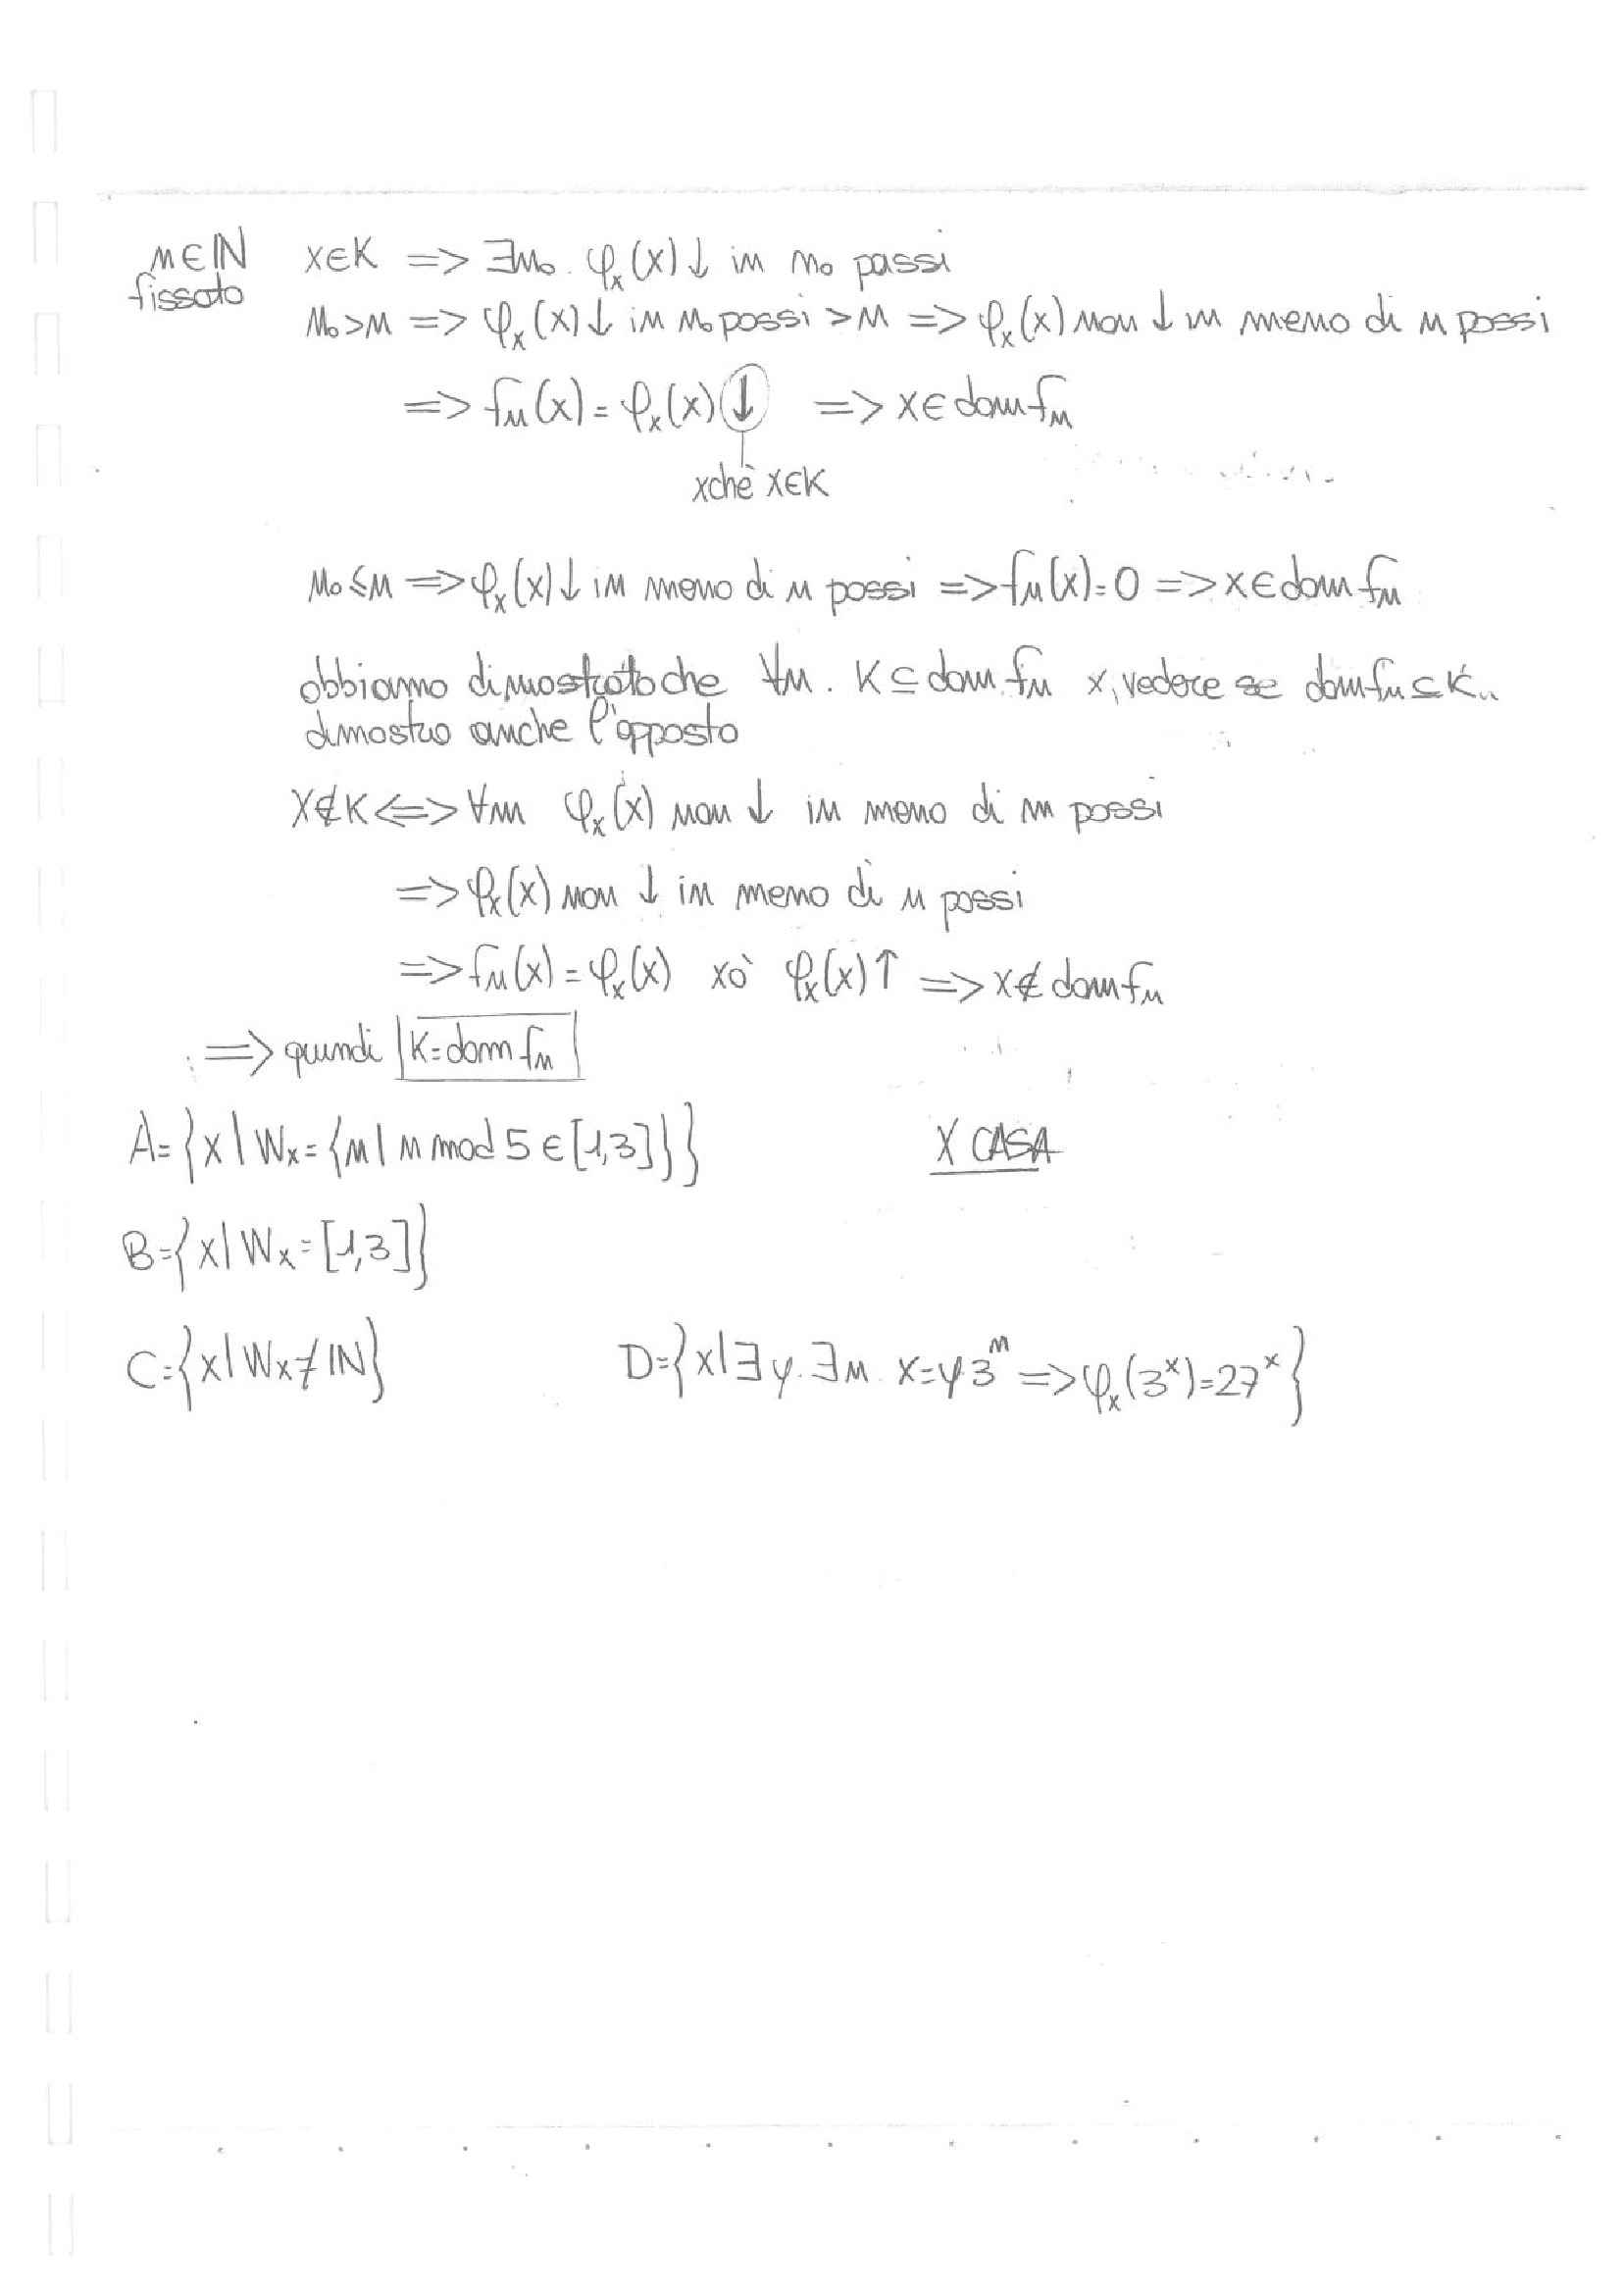 n∈ℕ x∈K => ∃n₀. φₓ(x)↓ in n₀ passi
fissato
n₀>n => φₓ(x)↓ in n₀ passi > n => φₓ(x) non ↓ in meno di n passi
=> fₙ(x) = φₓ(x)↓ => x∈domfₙ
xchè x∈K
n₀≤n => φₓ(x)↓ in meno di n passi => fₙ(x)=0 => x∈domfₙ
abbiamo dimostrato che ∀n. K⊆domfₙ x vedere se domfₙ⊆K..
dimostro anche l'opposto
x∉K <=> ∀m φₓ(x) non ↓ in meno di m passi
=> φₓ(x) non ↓ in meno di n passi
=> fₙ(x) = φₓ(x) xò φₓ(x)↑ => x∉domfₙ
=> quindi K=domfₙ
A={x|Wₓ={n|n mod 5∈[1,3]}} X CASA
B={x|Wₓ=[1,3]}
C={x|Wₓ≠ℕ} D={x|∃y.∃n. x=y·3ⁿ => φₓ(3ˣ)=27ˣ}